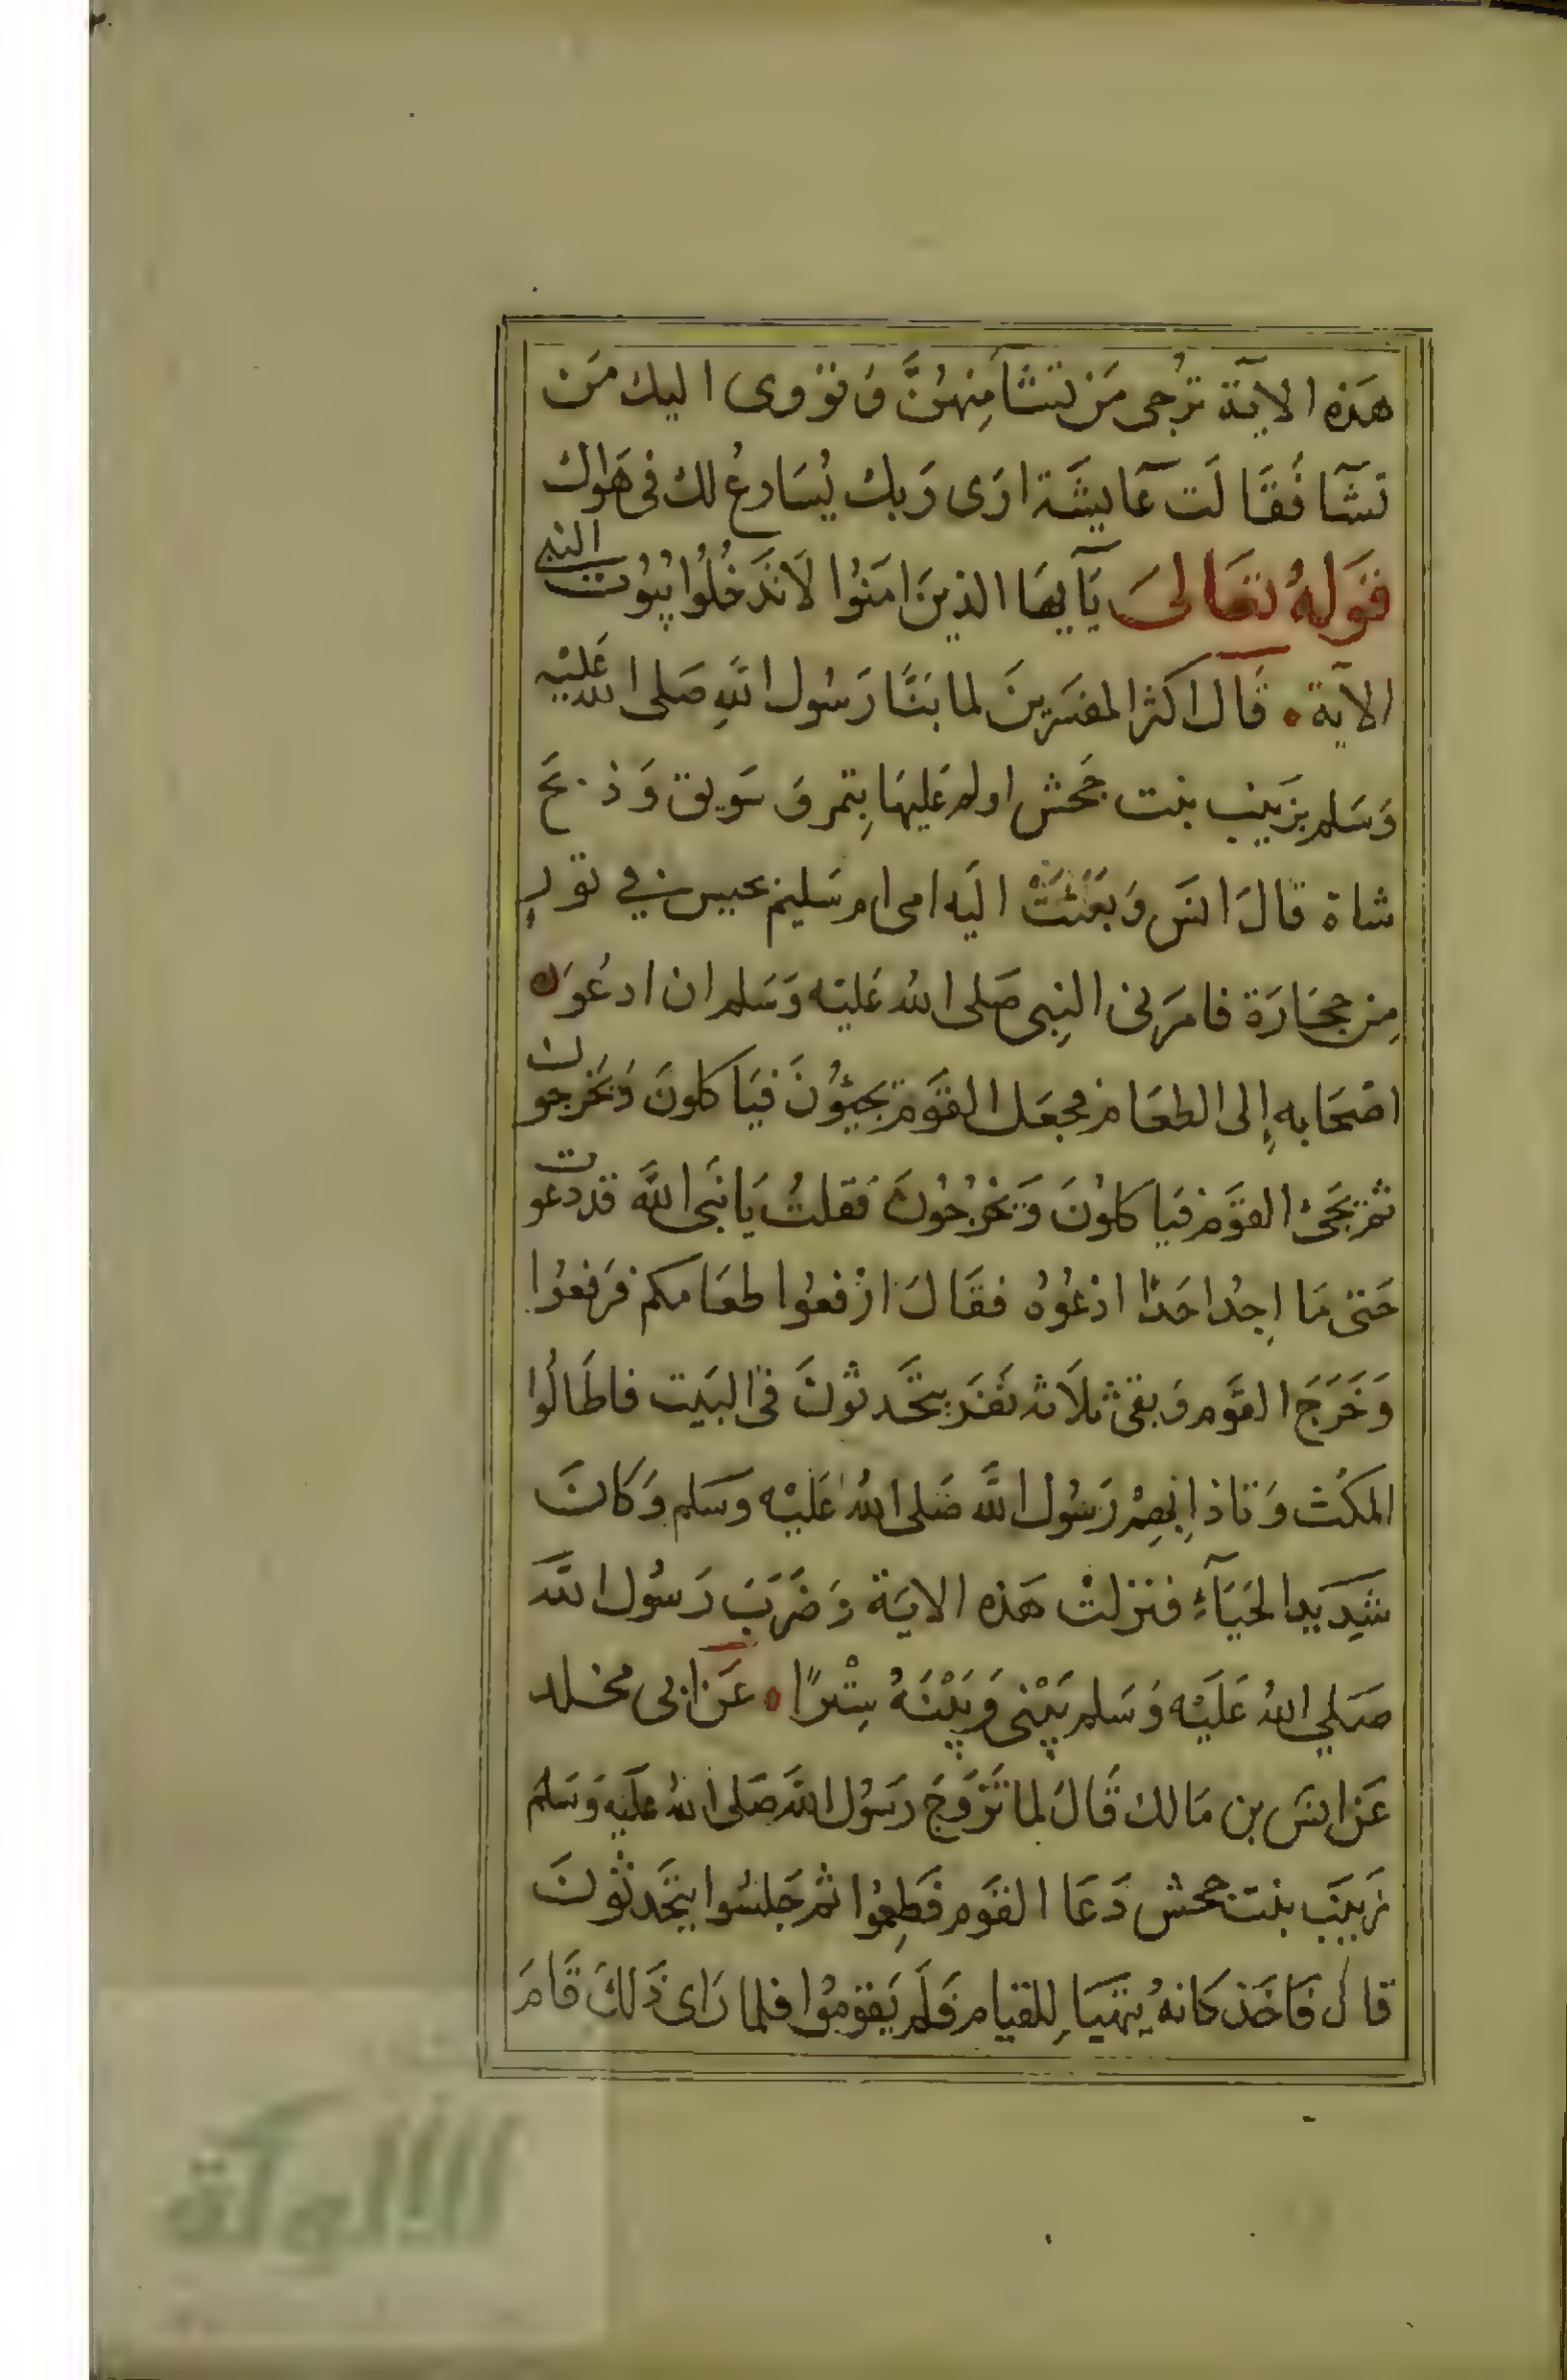 هَذه الاية تُرْجى مَن تشَا مِنهُنَّ وَ تؤوى اليك مَن
تشآ فَقَالَت عَايشَة ارَى رَبك يُسَارعُ لك فى هَوَاك
قوَلهُ تعَالىَ يَآيهَا الذينَ امَنوُا لَا تَدخُلُوا بيُوُت النبى
الآية قَال اكثر المفسَرينَ لما بَنَا رَسُول الله صَلى الله عَليْه
وَسَلم بزَينب بنت جَحش اولم عَليهَا بِتمر وَ سَويق وَ ذبحَ
شاة قالَ انسَ وَبَعَثَتْ اليَه امى ام سَليم بحيس في تورٍ
مِن حجَارَة فامرَنى النبِى صَلى الله عَليْه وَسَلم ان ادعُوَا له
اصْحَابه إِلى الطعَام فجعَل القوَم يجيؤُنَ فيَاكلونَ وَيَخرجون
ثم يَجَىْ القوَم فيَاكلوُنَ وَيَخرُجُونَ فَقلتُ يَا نَبى اللَّه قد دَعوت
حَتى مَا اجِدُ احَدًا ادْعُوُهُ فقَالَ ارْفعوُا طعَامكم فرَفعوُا
وَخَرَجَ القوَم وَ بقى ثلاَثة نفَر يتَحَدثونَ فى البَيت فاطَالُوا
المكثَ وَ تاذابِهِمْ رَسُول اللَّه صَلى اللهُ عَليْه وسَلم وَكانَ
شَدِيَد الحَيَآءِ فنزلتْ هَذه الايَة وَ ضَرَبَ رَسُول اللَّه
صَلي اللهُ عَليَه وَسَلم بَيْنى وَ بَيْنَهُ سِتْرًا عَن ابى مخلد
عَن انسَ بن مَالك قَالَ لما تَزَوَجَ رَسُول اللهَ صَلى اللهُ عَليَه وَسَلم
زَينَبَ بنت جحش دَعَا القوَم فَطَعِمُوا ثم جَلسُوا يتَحَدثُونَ
قال فَاخَذ كَانهُ يتهَيَا لِلقيام فَلَم يَقومُوا فلما رَاى ذَلكَ قَامَ
الألوكة